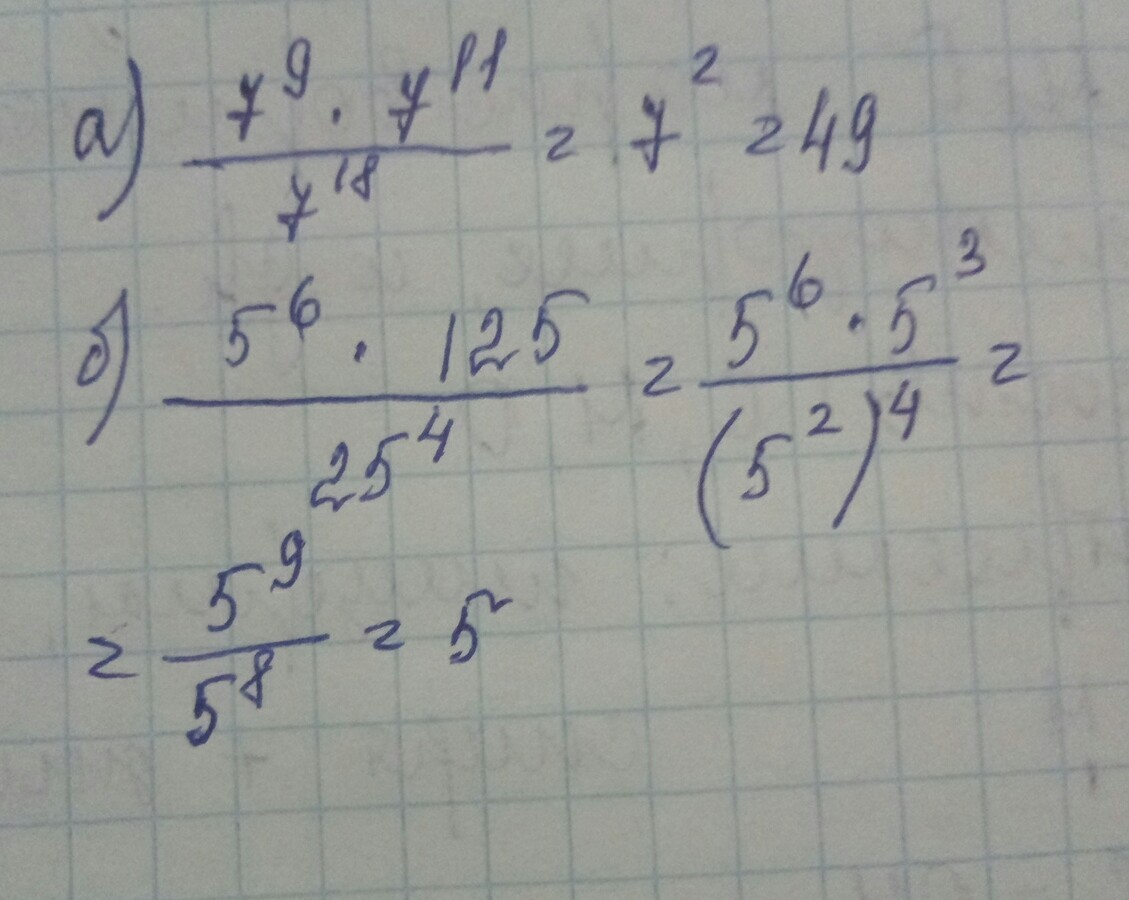 а) (7^9 · 7^11) / 7^18 = 7^2 = 49
б) (5^6 · 125) / 25^4 = (5^6 · 5^3) / (5^2)^4 =
= 5^9 / 5^8 = 5